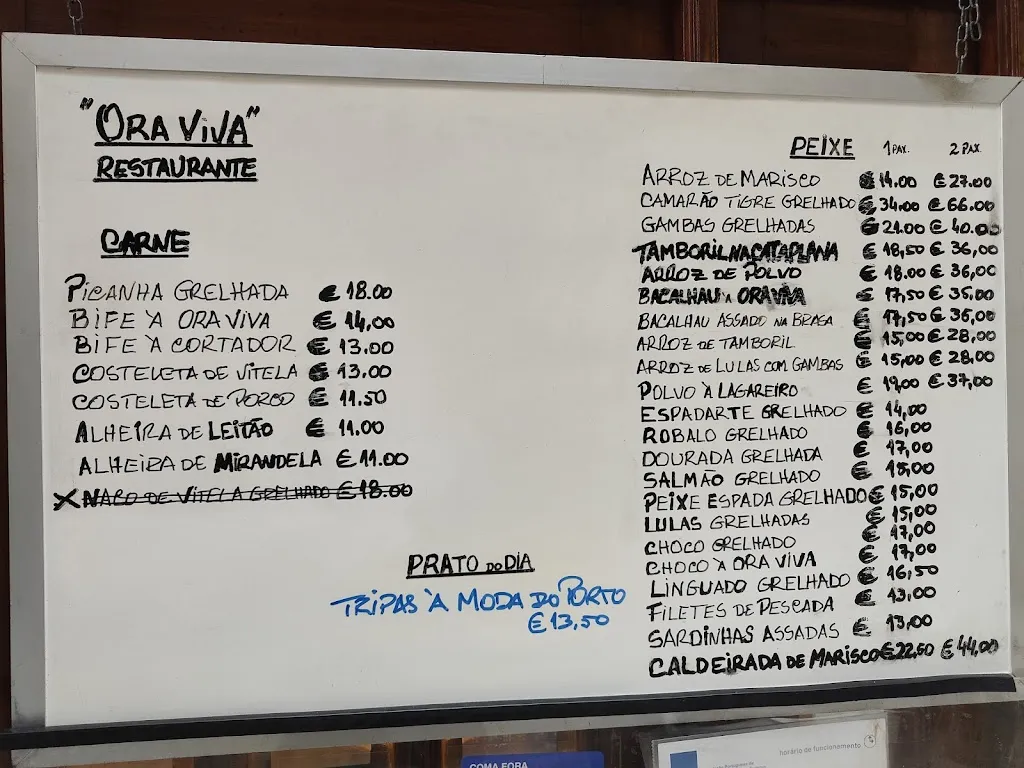 "ORA VIVA"
RESTAURANTE
CARNE
PICANHA GRELHADA € 18.00
BIFE À ORA VIVA € 14,00
BIFE À CORTADOR € 13.00
COSTELETA DE VITELA € 13.00
COSTELETA DE PORCO € 11.50
ALHEIRA DE LEITÃO € 11.00
ALHEIRA DE MIRANDELA € 11.00
X NACO DE VITELA GRELHADO € 18.00
PRATO DO DIA
TRIPAS À MODA DO PORTO
€ 13,50
PEIXE 1 PAX. 2 PAX.
ARROZ DE MARISCO € 14.00 € 27.00
CAMARÃO TIGRE GRELHADO € 34,00 € 66.00
GAMBAS GRELHADAS € 21.00 € 40.00
TAMBORIL NA CATAPLANA € 18,50 € 36,00
ARROZ DE POLVO € 18.00 € 36,00
BACALHAU À ORA VIVA € 17,50 € 35.00
BACALHAU ASSADO NA BRASA € 17,50 € 35,00
ARROZ DE TAMBORIL € 15,00 € 28,00
ARROZ DE LULAS COM GAMBAS € 15,00 € 28,00
POLVO À LAGAREIRO € 19,00 € 37,00
ESPADARTE GRELHADO € 14,00
ROBALO GRELHADO € 16,00
DOURADA GRELHADA € 17,00
SALMÃO GRELHADO € 15,00
PEIXE ESPADA GRELHADO € 15,00
LULAS GRELHADAS € 15,00
CHOCO GRELHADO € 17,00
CHOCO À ORA VIVA € 17,00
LINGUADO GRELHADO € 16,50
FILETES DE PESCADA € 13,00
SARDINHAS ASSADAS € 13,00
CALDEIRADA DE MARISCO € 22,50 € 44,00
COMA FORA
horário de funcionamento